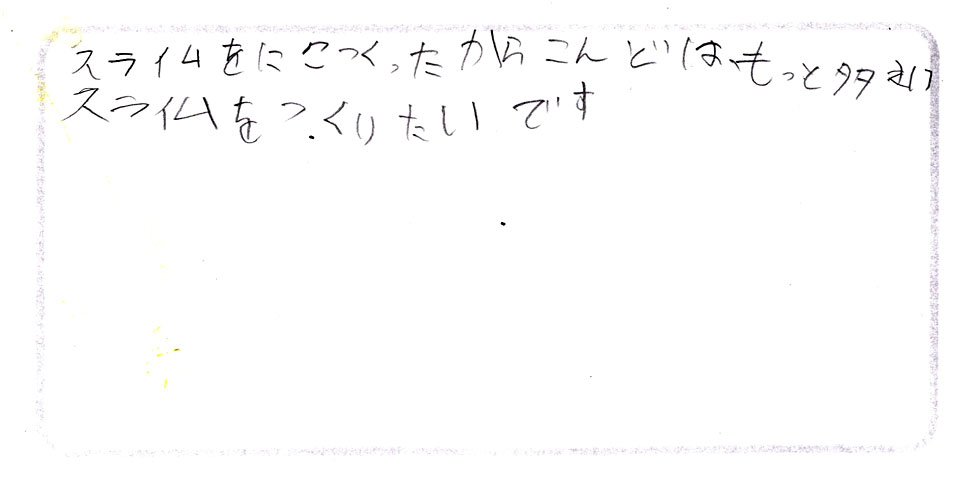 スライムをにこつくったからこんどは、もっと多い
スライムをつくりたいです